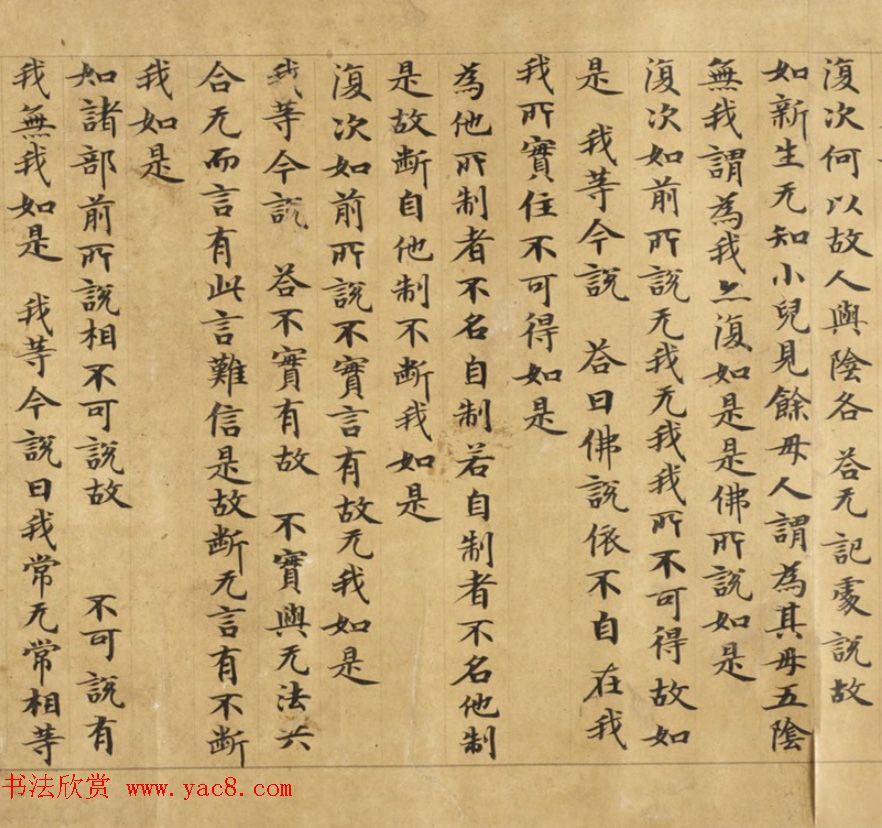 復次何以故人與陰各 荅无記處説故
如新生无知小兒見餘母人謂為其母五陰
無我謂為我亦復如是是佛所説如是
復次如前所説无我无我我所不可得故如
是 我等今説 荅曰佛説依不自在我
我所實住不可得如是
為他所制者不名自制若自制者不名他制
是故断自他制不断我如是
復次如前所説不實言有故无我如是
我等今説 荅不實有故 不實與无法共
合无而言有此言難信是故断无言有不断
我如是
如諸部前所説相不可説故 不可説有
我無我如是 我等今説曰我常无常相等
书法欣赏 www.yac8.com